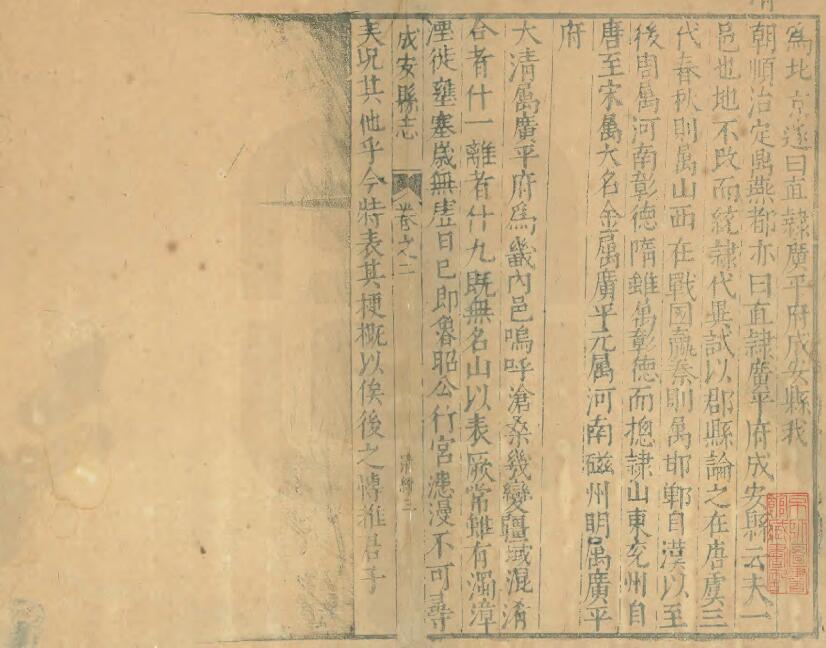 爲北京遂曰直隸廣平府成安縣我
朝順治定鼎燕都亦曰直隸廣平府成安縣云夫一
邑也地不改而統隸代異試以郡縣論之在唐虞三
代春秋則屬山西在戰國嬴秦則屬邯鄲自漢以至
後周屬河南彰德隋雖屬彰德而揔隸山東兖州自
唐至宋屬大名金屬廣平元属河南磁州明屬廣平
府
大清屬廣平府爲畿內邑嗚呼滄桑幾變疆域混淆
合者什一離者什九既無名山以表厥常雖有濁漳
湮徙壅塞歳無虗日已即魯昭公行宮漶漫不可尋
成安縣志 卷之二 清 三
矣况其他乎今特表其梗概以俟後之愽雅君子